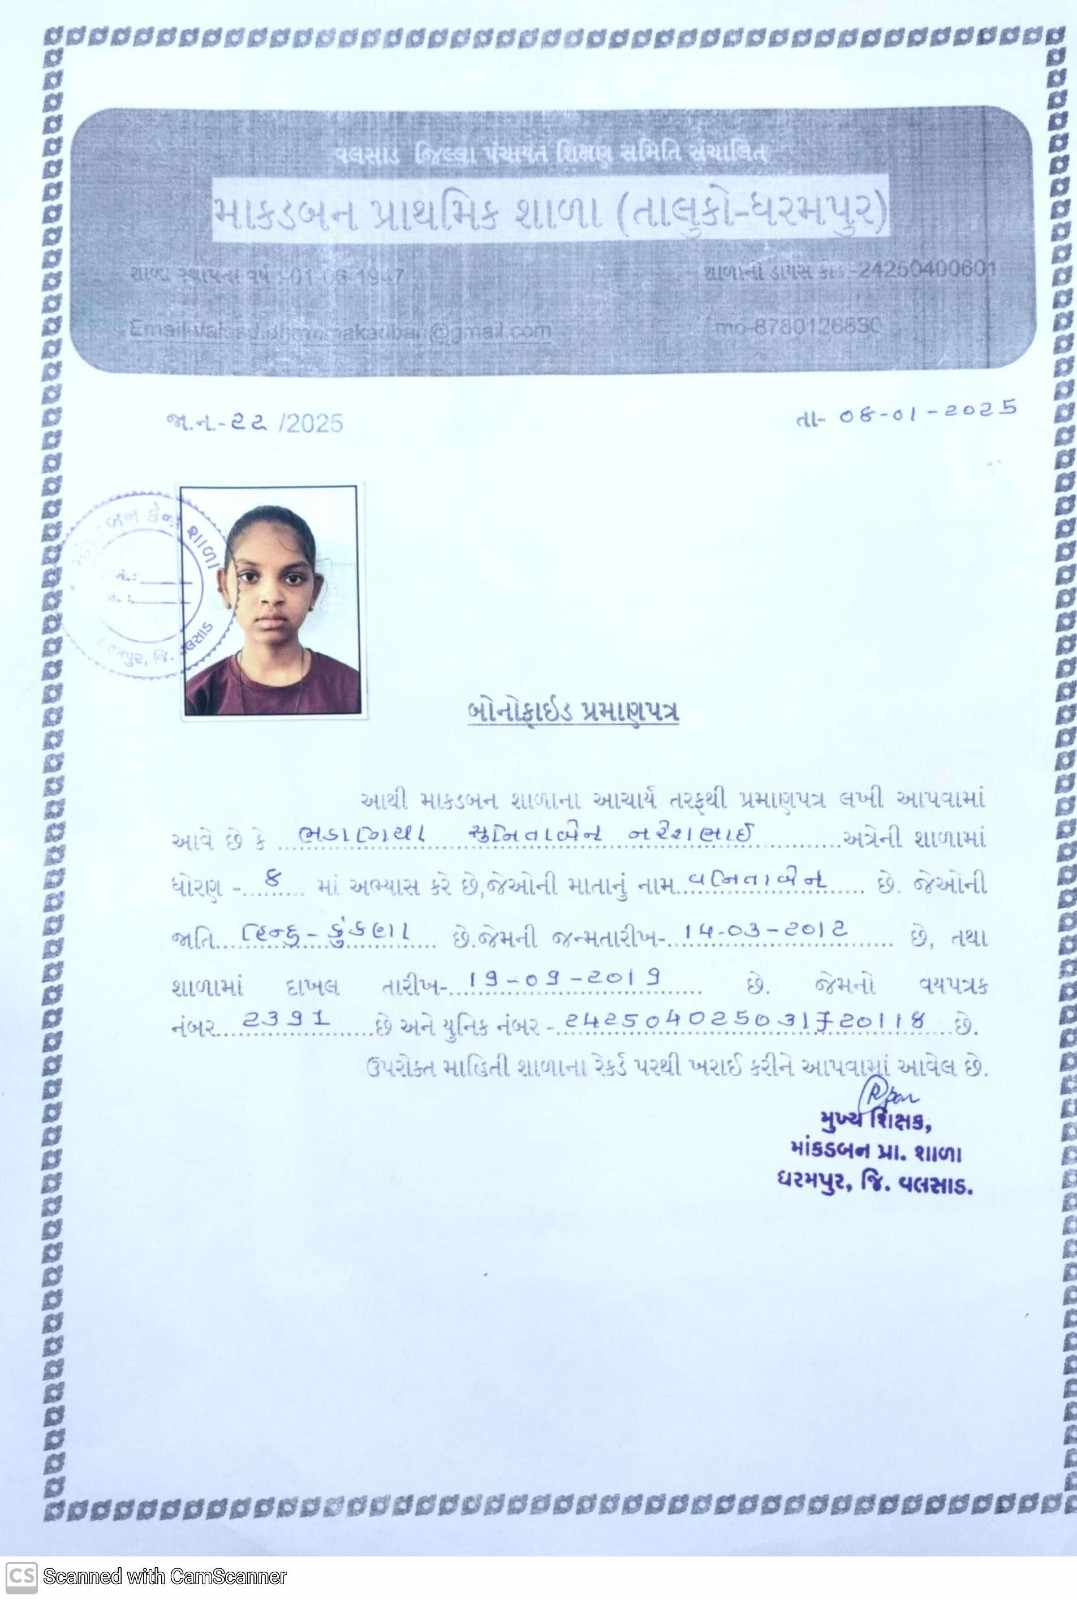 વલસાડ જિલ્લા પંચાયત શિક્ષણ સમિતિ સંચાલિત
માકડબન પ્રાથમિક શાળા (તાલુકો-ધરમપુર)
શાળા સ્થાપના વર્ષ :-01-06-1947
શાળાનો ડાયસ કોડ-24250400601
@gmail.com
mo-8780126830
જા.ન.-૨૨ /2025
તા- 08-01-2025
શાળા
વલસાડ
બોનોફાઇડ પ્રમાણપત્ર
આથી માકડબન શાળાના આચાર્ય તરફથી પ્રમાણપત્ર લખી આપવામાં
આવે છે કે ભડાગિયા સુનિતાબેન નરેશભાઈ અત્રેની શાળામાં
ધોરણ - ૬ માં અભ્યાસ કરે છે,જેઓની માતાનું નામ વનિતાબેન છે. જેઓની
જાતિ હિન્દુ - કુંકણા છે.જેમની જન્મતારીખ- 14-03-2012 છે, તથા
શાળામાં દાખલ તારીખ- 19-09-2019 છે. જેમનો વયપત્રક
નંબર 2391 છે અને યુનિક નંબર - 242504025031720118 છે.
ઉપરોક્ત માહિતી શાળાના રેકર્ડ પરથી ખરાઈ કરીને આપવામાં આવેલ છે.
મુખ્ય શિક્ષક,
માંકડબન પ્રા. શાળા
ધરમપુર, જિ. વલસાડ.
CS Scanned with CamScanner